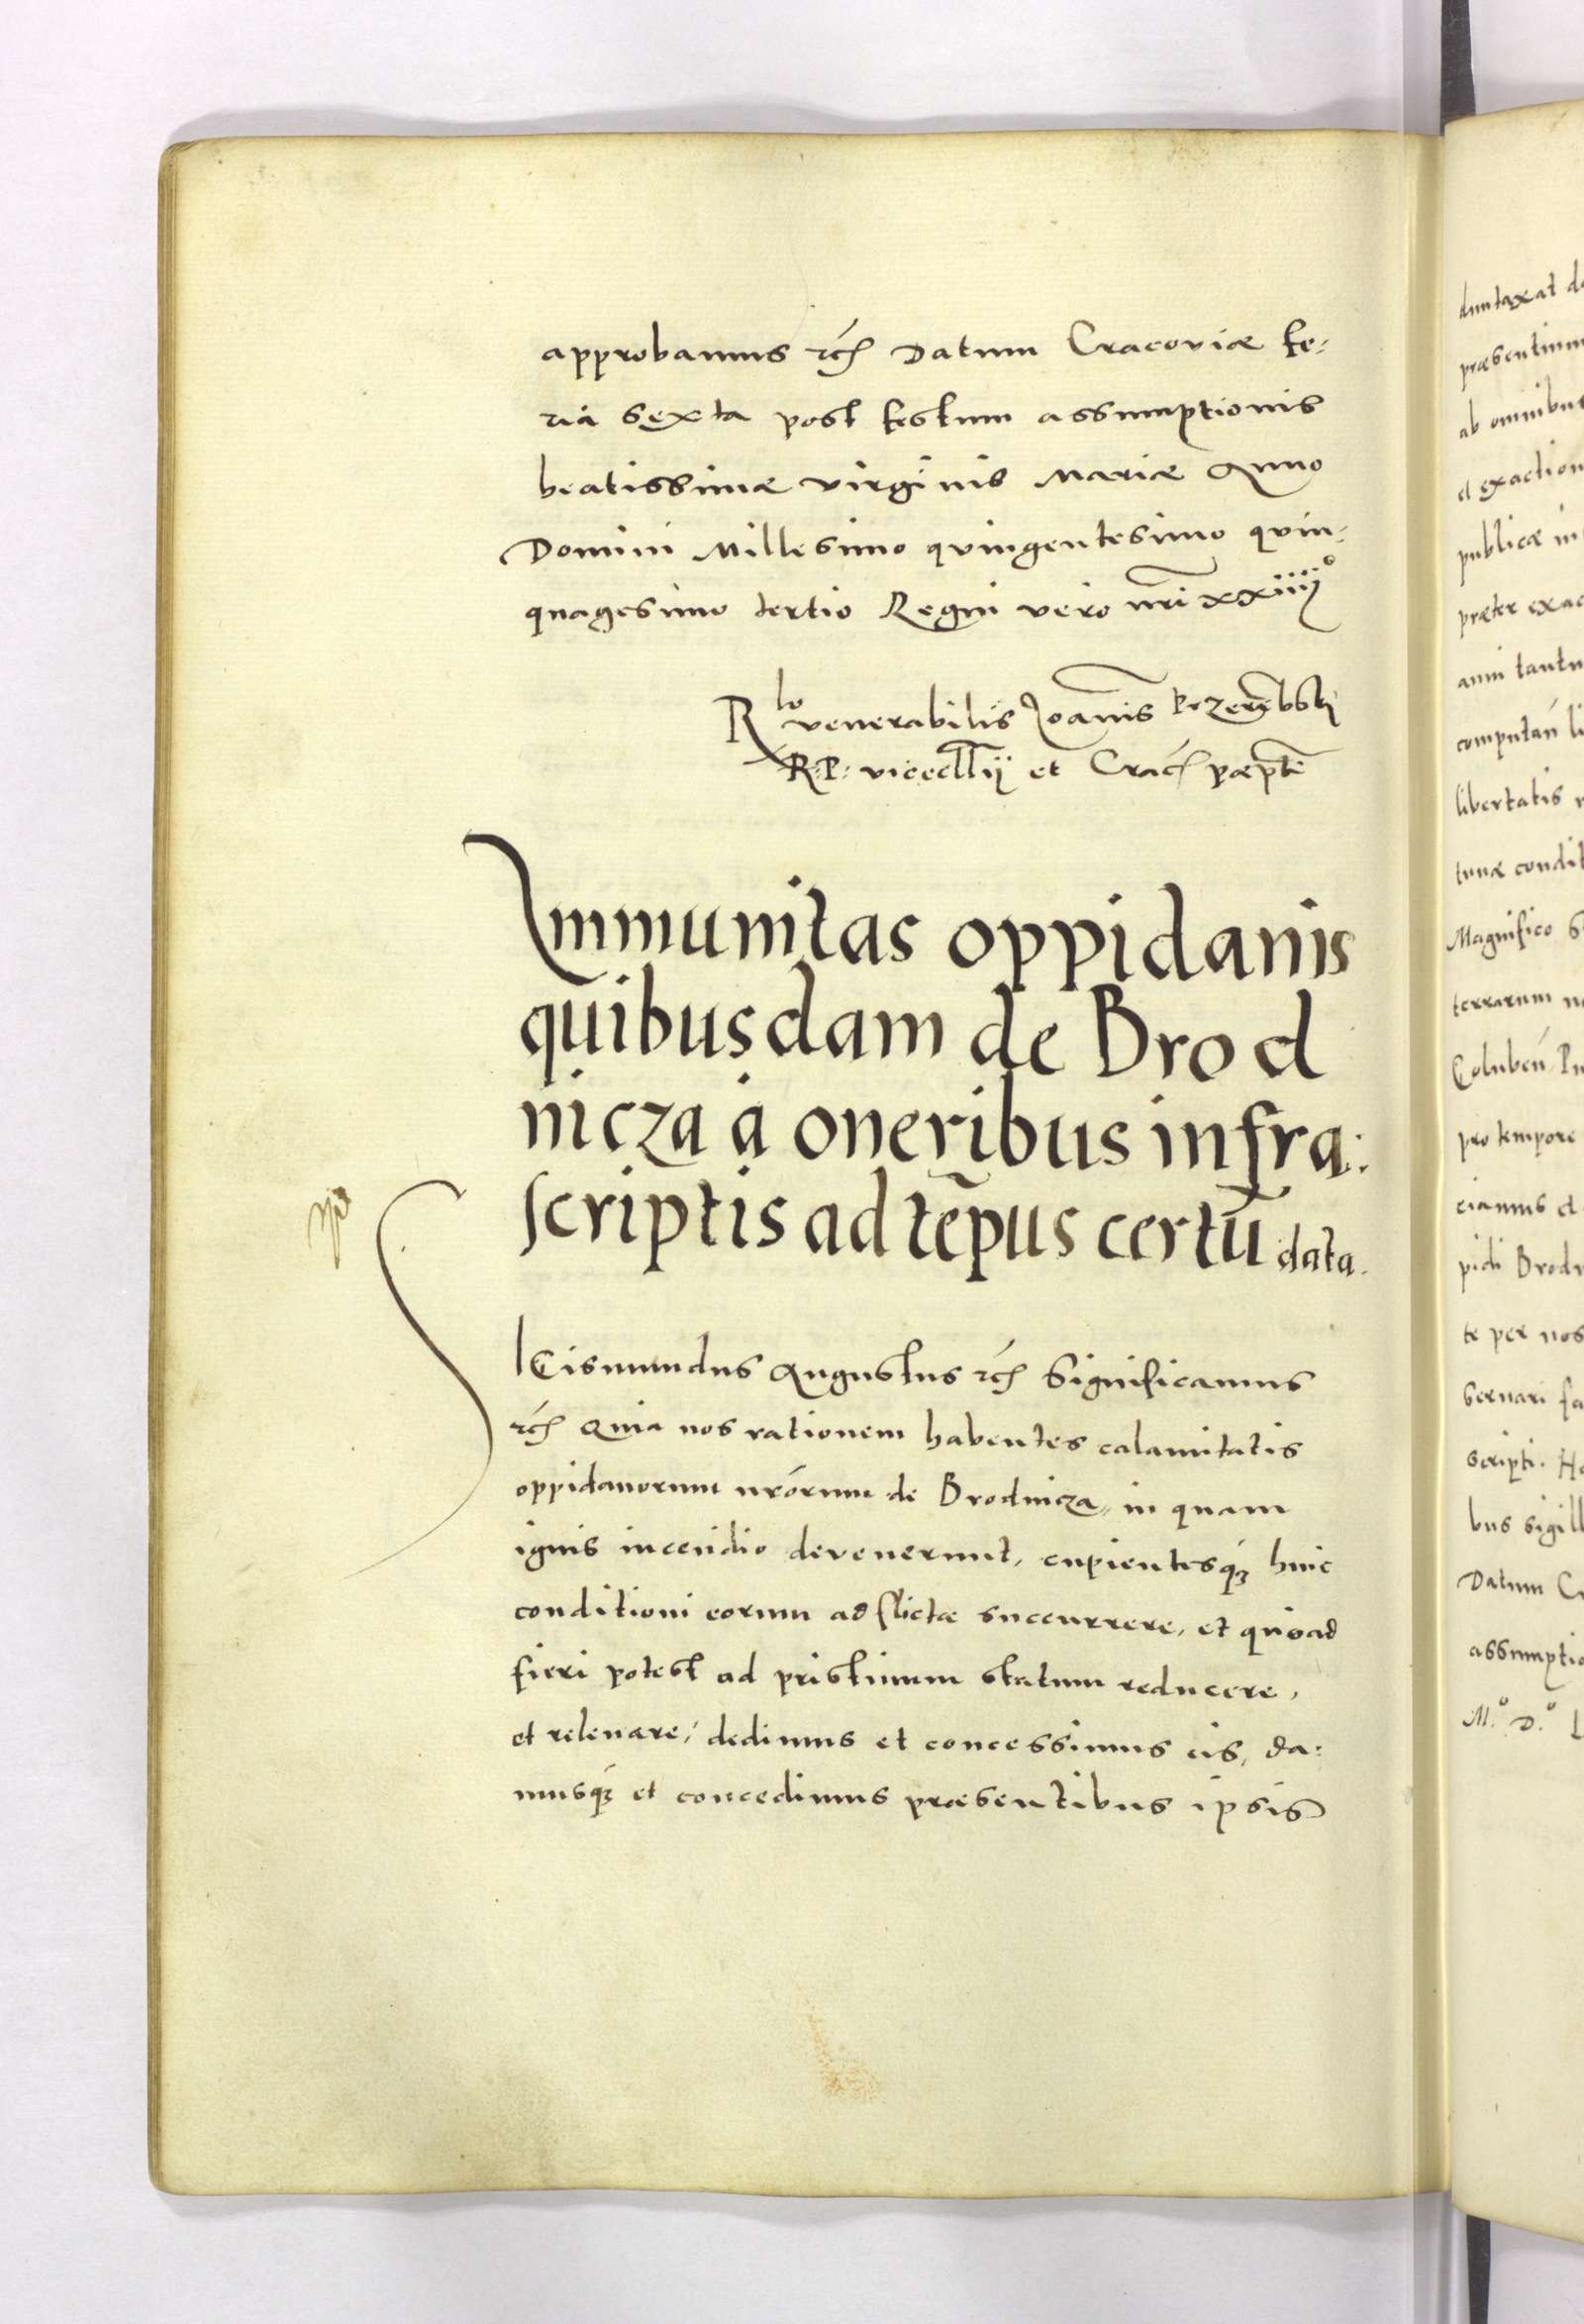 approbamus etc̃ Datum Cracoviæ Fe-
ria sexta post festum assumptionis
beatissimæ virginis Mariæ Anno
Domini Millesimo quingentesimo quin-
quagesimo tertio Regni vero nr̃i xxiiij°
Rlo venerabilis Joan̄is Przerembski
R. P. vicecllrij et Crac̃ præp̃ti
Immunitas oppidanis
quibusdam de Brod
nicza a oneribus infra:
scriptis ad tēpus certū data.
SIGismundus Augustus etc̃ Significamus
etc̃ Quia nos rationem habentes calamitatis
oppidanorum nr̃orum de Brodnicza, in quam
ignis incendio devenerunt, cupientesq́ʒ huic
conditioni eorum adflictæ succurrere, et quoad
fieri potest ad pristinum statum reducere,
et relevare, dedimus et concessimus eis, da:
musq́ʒ et concedimus præsentibus ipsis
duntaxat
præsentium
ab omnibus
et exaction
publicæ in
præter exac
anni tantu
computan̄ li
libertatis
tunæ condit
Magnifico S
terrarum n
Coluben̄
pro tempore
ciamus et
pidi Brodn
te per nos
servari fa
scripti. Ha
bus sigill
Datum C
assumptio
M.° D.° L